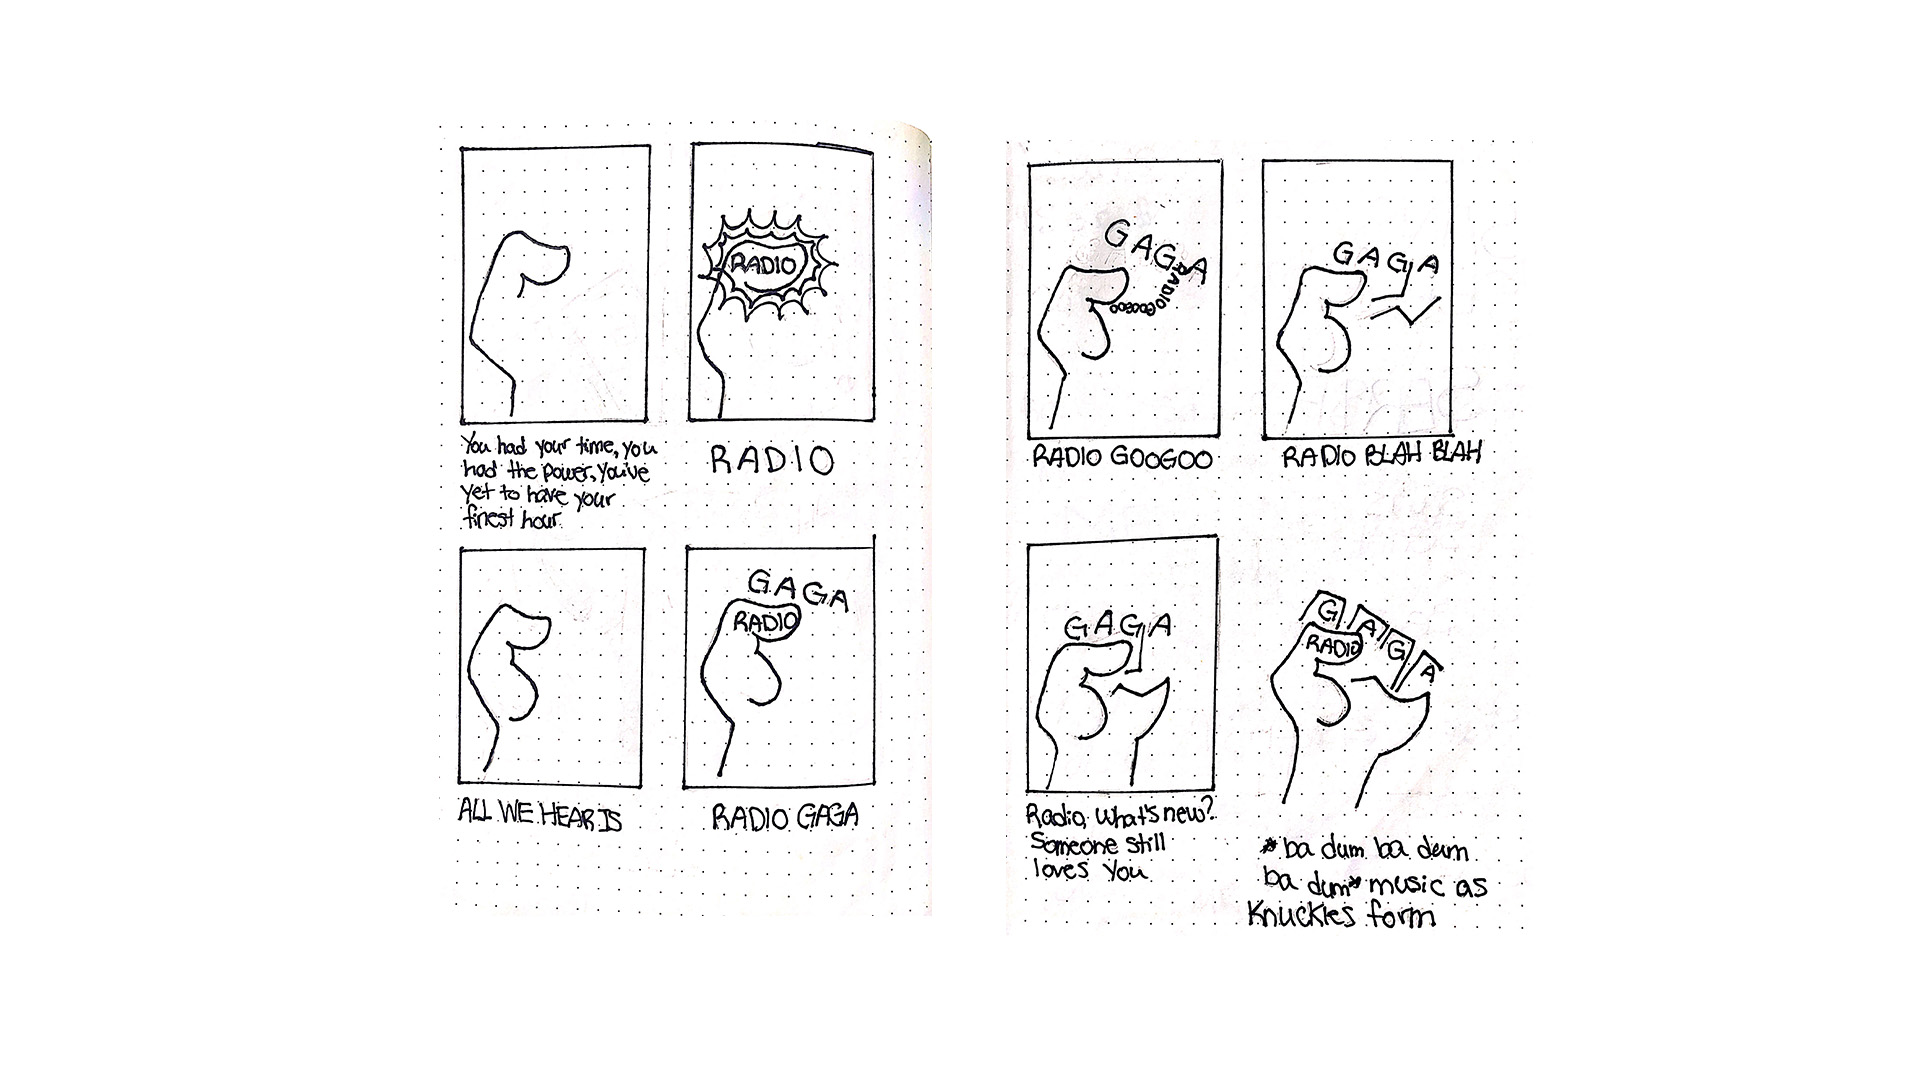 RADIO
You had your time, you
had the power, you've
yet to have your
finest hour
RADIO
ALL WE HEAR IS
GAGA
RADIO
RADIO GAGA
GAGA
RADIO GOOGOO
RADIO GOOGOO
GAGA
RADIO BLAH BLAH
GAGA
Radio, what's new?
Someone still
loves you
GAGA
RADIO
*ba dum ba dum
ba dum* music as
Knuckles form